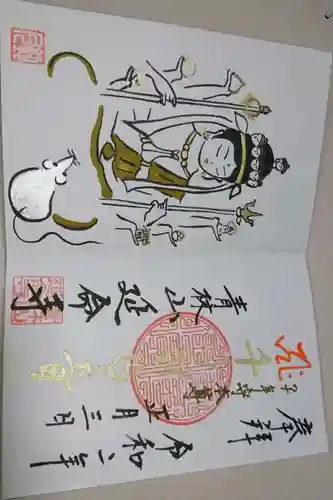 奉拝
令和二年
正月三日
子年守本尊
千手観音
青林山 延命寺